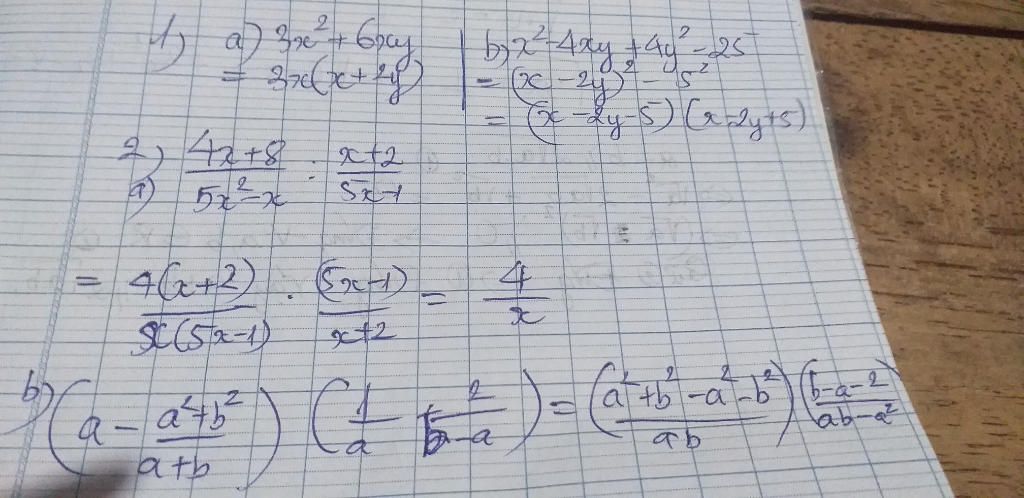 1) a) 3x² + 6xy
= 3x(x + 2y)
b) x² - 4xy + 4y² - 25
= (x - 2y)² - 5²
= (x - 2y - 5)(x - 2y + 5)
2)
a) (4x + 8)/(5x² - x) : (x + 2)/(5x - 1)
= 4(x + 2)/x(5x - 1) . (5x - 1)/(x + 2) = 4/x
b) (a - (a² + b²)/(a + b)) (1/a + 2/(b - a)) = ((a² + b² - a² - b²)/ab) ((b - a - 2)/(ab - a²))